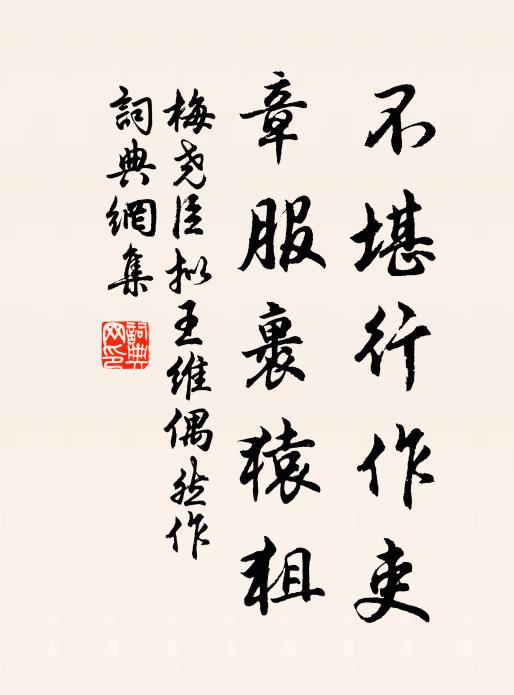 不堪行作吏
章服裹猿狙
梅尧臣拟王维偶然作
詞典網集
詞典网印